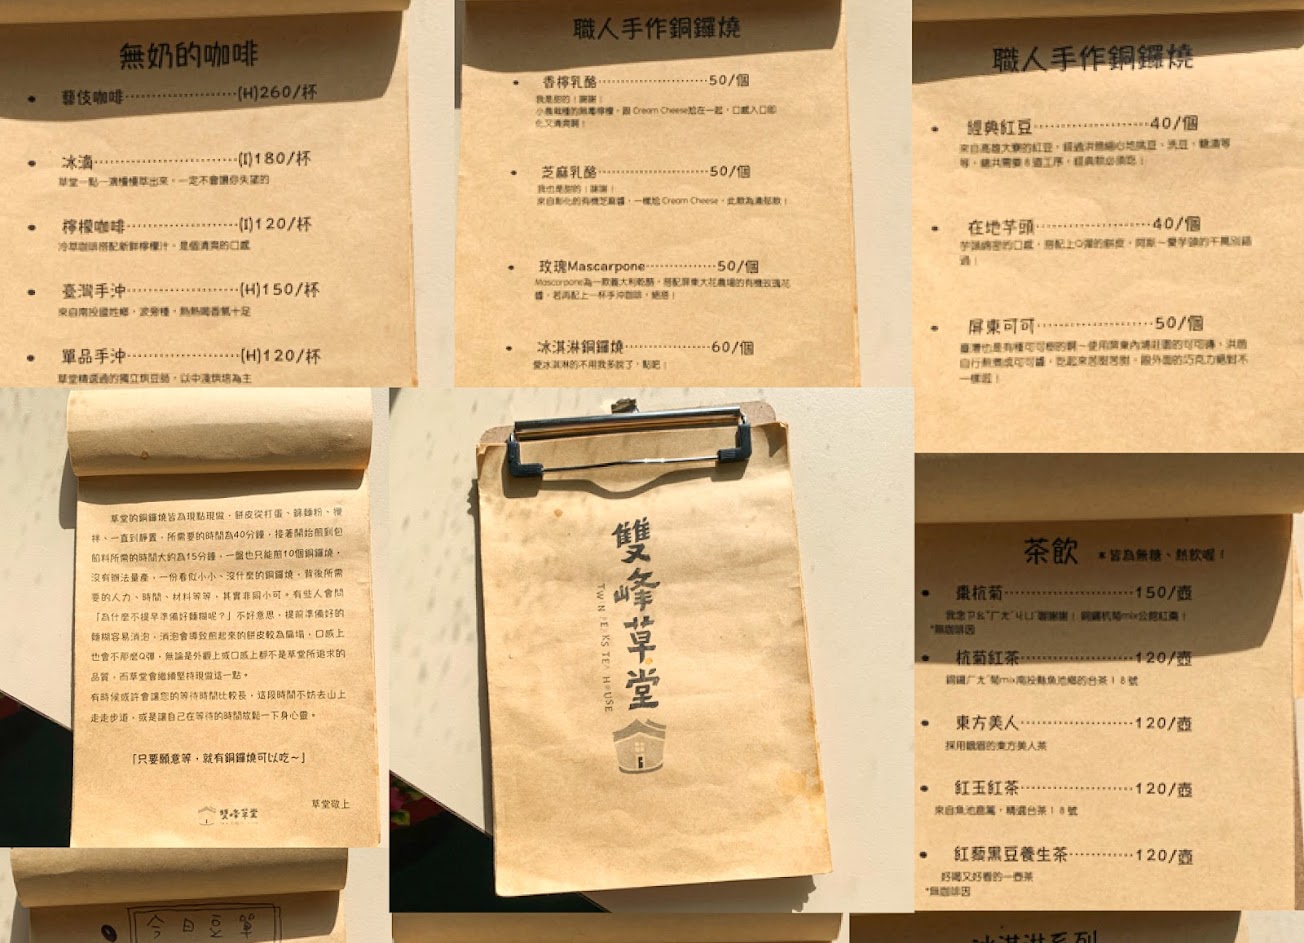 無奶的咖啡
藝伎咖啡 (H)260/杯
冰滴 (I)180/杯
草堂一點一滴慢慢萃出來，一定不會讓你失望的
檸檬咖啡 (I)120/杯
冷萃咖啡搭配新鮮檸檬汁，是個清爽的口感
臺灣手沖 (H)150/杯
來自南投國姓鄉，波旁種，熱熱喝香氣十足
單品手沖 (H)120/杯
草堂精選過的獨立烘豆師，以中淺烘焙為主
職人手作銅鑼燒
香檸乳酪 50/個
我是甜的！謝謝！
小農栽種的無毒檸檬，跟 Cream Cheese尬在一起，口感入口即
化又清爽啊！
芝麻乳酪 50/個
我也是甜的！謝謝！
來自彰化的有機芝麻醬，一樣尬 Cream Cheese，此款為濃郁款！
玫瑰Mascarpone 50/個
Mascarpone為一款義大利乾酪，搭配屏東大花農場的有機玫瑰花
醬，若再配上一杯手沖咖啡，絕搭！
冰淇淋銅鑼燒 60/個
愛冰淇淋的不用我多說了，點吧！
職人手作銅鑼燒
經典紅豆 40/個
來自高雄大寮的紅豆，經過洪爸細心地挑豆、洗豆、
等，總共需要8道工序，經典款必須吃！
在地芋頭 40/個
芋頭綿密的口感，搭配上Q彈的餅皮，阿斯～愛芋頭的千萬別錯
過！
屏東可可 50/個
臺灣也是有種可可樹的啊～使用屏東內埔莊園的可可磚，洪爸
自行熬煮成可可醬，吃起來苦甜苦甜，跟外面的巧克力絕對不
一樣喔！
草堂的銅鑼燒皆為現點現做，餅皮從打蛋、篩麵粉、攪
拌、一直到靜置，所需要的時間為40分鐘，接著開始煎到包
餡料所需的時間大約為15分鐘，一盤也只能煎10個銅鑼燒，
沒有辦法量產，一份看似小小、沒什麼的銅鑼燒，背後所需
要的人力、時間、材料等等，其實非同小可。有些人會問
「為什麼不提早準備好麵糊呢？」不好意思，提前準備好的
麵糊容易消泡，消泡會導致煎起來的餅皮較為扁塌，口感上
也會不那麼Q彈，無論是外觀上或口感上都不是草堂所追求的
品質，而草堂會繼續堅持現做這一點。
有時候或許會讓您的等待時間比較長，這段時間不妨去山上
走走步道，或是讓自己在等待的時間放鬆一下身心靈。
「只要願意等，就有銅鑼燒可以吃～」
草堂敬上
雙峰草堂
雙峰草堂
TWIN PEAKS TEA HOUSE
茶飲 ＊皆為無糖、熱飲喔！
棗杭菊 150/壺
我念ㄗㄠˇㄏㄤˊㄐㄩˊ謝謝！銅鑼杭菊mix公館紅棗！
*無咖啡因
杭菊紅茶 120/壺
銅鑼ㄏㄤˊ菊mix南投縣魚池鄉的台茶18號
東方美人 120/壺
採用峨眉的東方美人茶
紅玉紅茶 120/壺
來自魚池鹿篙，精選台茶18號
紅藜黑豆養生茶 120/壺
好喝又好看的一壺茶
*無咖啡因
今日豆單
冰淇淋系列